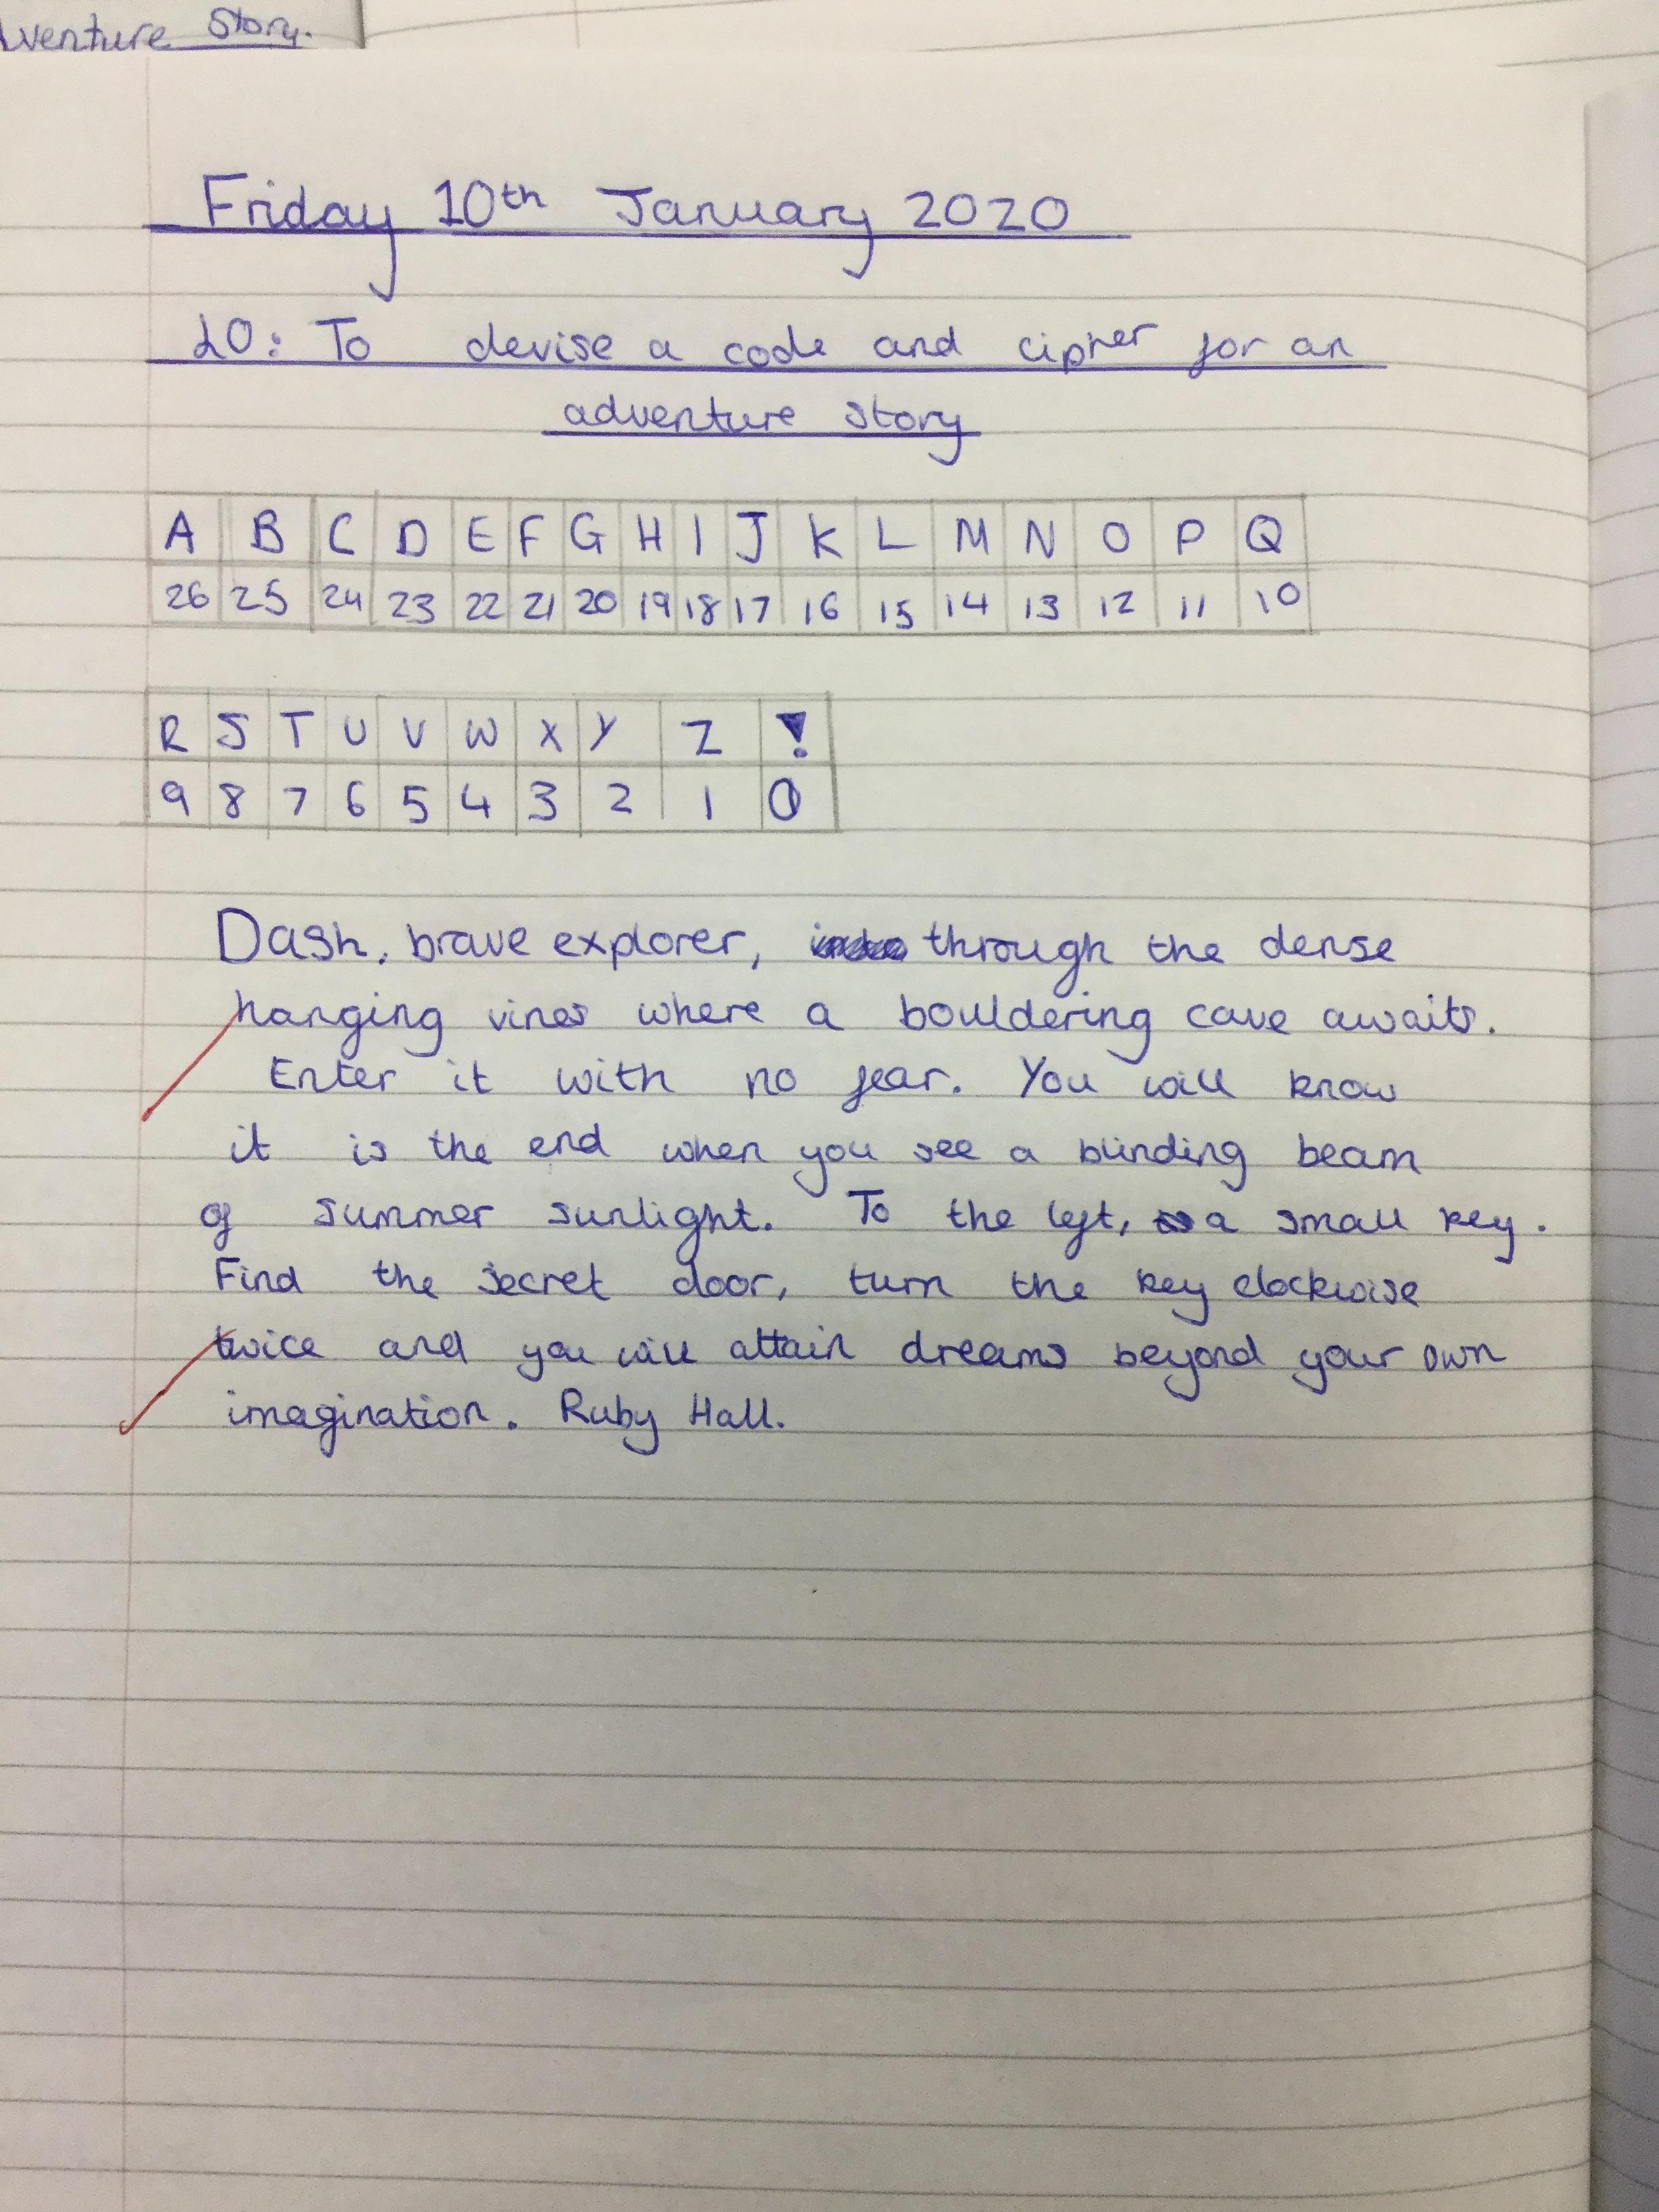 venture Story.
Friday 10th January 2020
LO: To devise a code and cipher for an
adventure story
A B C D E F G H I J K L M N O P Q
26 25 24 23 22 21 20 19 18 17 16 15 14 13 12 11 10
R S T U V W X Y Z !
9 8 7 6 5 4 3 2 1 0
Dash, brave explorer, through the dense
hanging vines where a bouldering cave awaits.
Enter it with no fear. You will know
it is the end when you see a blinding beam
of summer sunlight. To the left, a small key.
Find the secret door, turn the key clockwise
twice and you will attain dreams beyond your own
imagination. Ruby Hall.